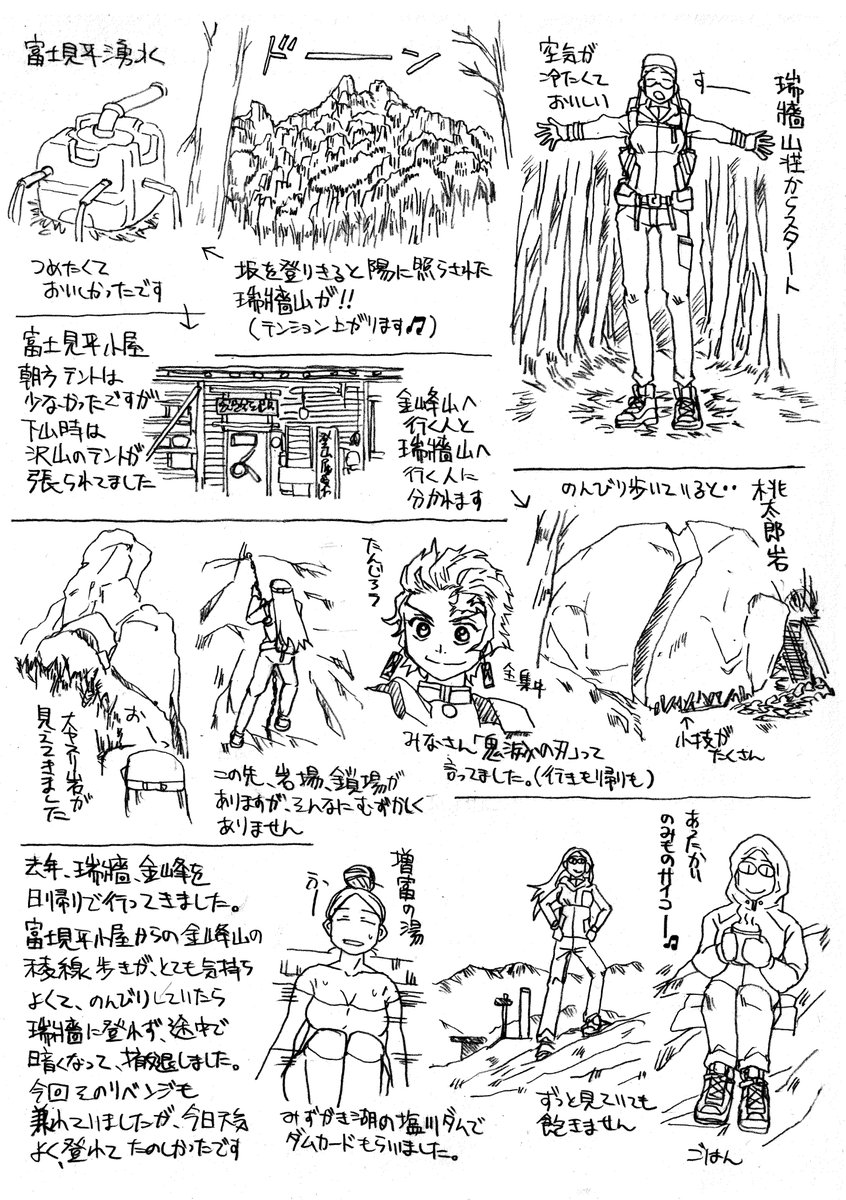 瑞牆山荘からスタート
空気が
冷たくて
おいしい
すー
ドーーン
坂を登りきると陽に照らされた
瑞牆山が!!
(テンション上がります♫)
富士見平湧水
つめたくて
おいしかったです
富士見平小屋
朝方テントは
少なかったですが
下山時は
沢山のテントが
張られてました
金峰山へ
行く人と
瑞牆山へ
行く人に
分かれます
のんびり歩いていると‥
桃太郎岩
↑
小枝が
たくさん
たんじろう
全集中
みなさん「鬼滅の刃」って
言ってました。(行きも帰りも)
この先、岩場、鎖場が
ありますが、そんなにむずかしく
ありません
お
大ヤスリ岩が
見えてきました
あったかい
のみものサイコー♫
ごはん
ずっと見ていても
飽きません
増富の湯
ふぅー
みずがき湖の塩川ダムで
ダムカードもらいました。
去年、瑞牆、金峰を
日帰りで行ってきました。
富士見平小屋からの金峰山の
稜線歩きが、とても気持ち
よくて、のんびりしていたら
瑞牆に登れず、途中で
暗くなって、撤退しました。
今回そのリベンジも
兼ねていましたが、今日天気
よく、登れてたのしかったです